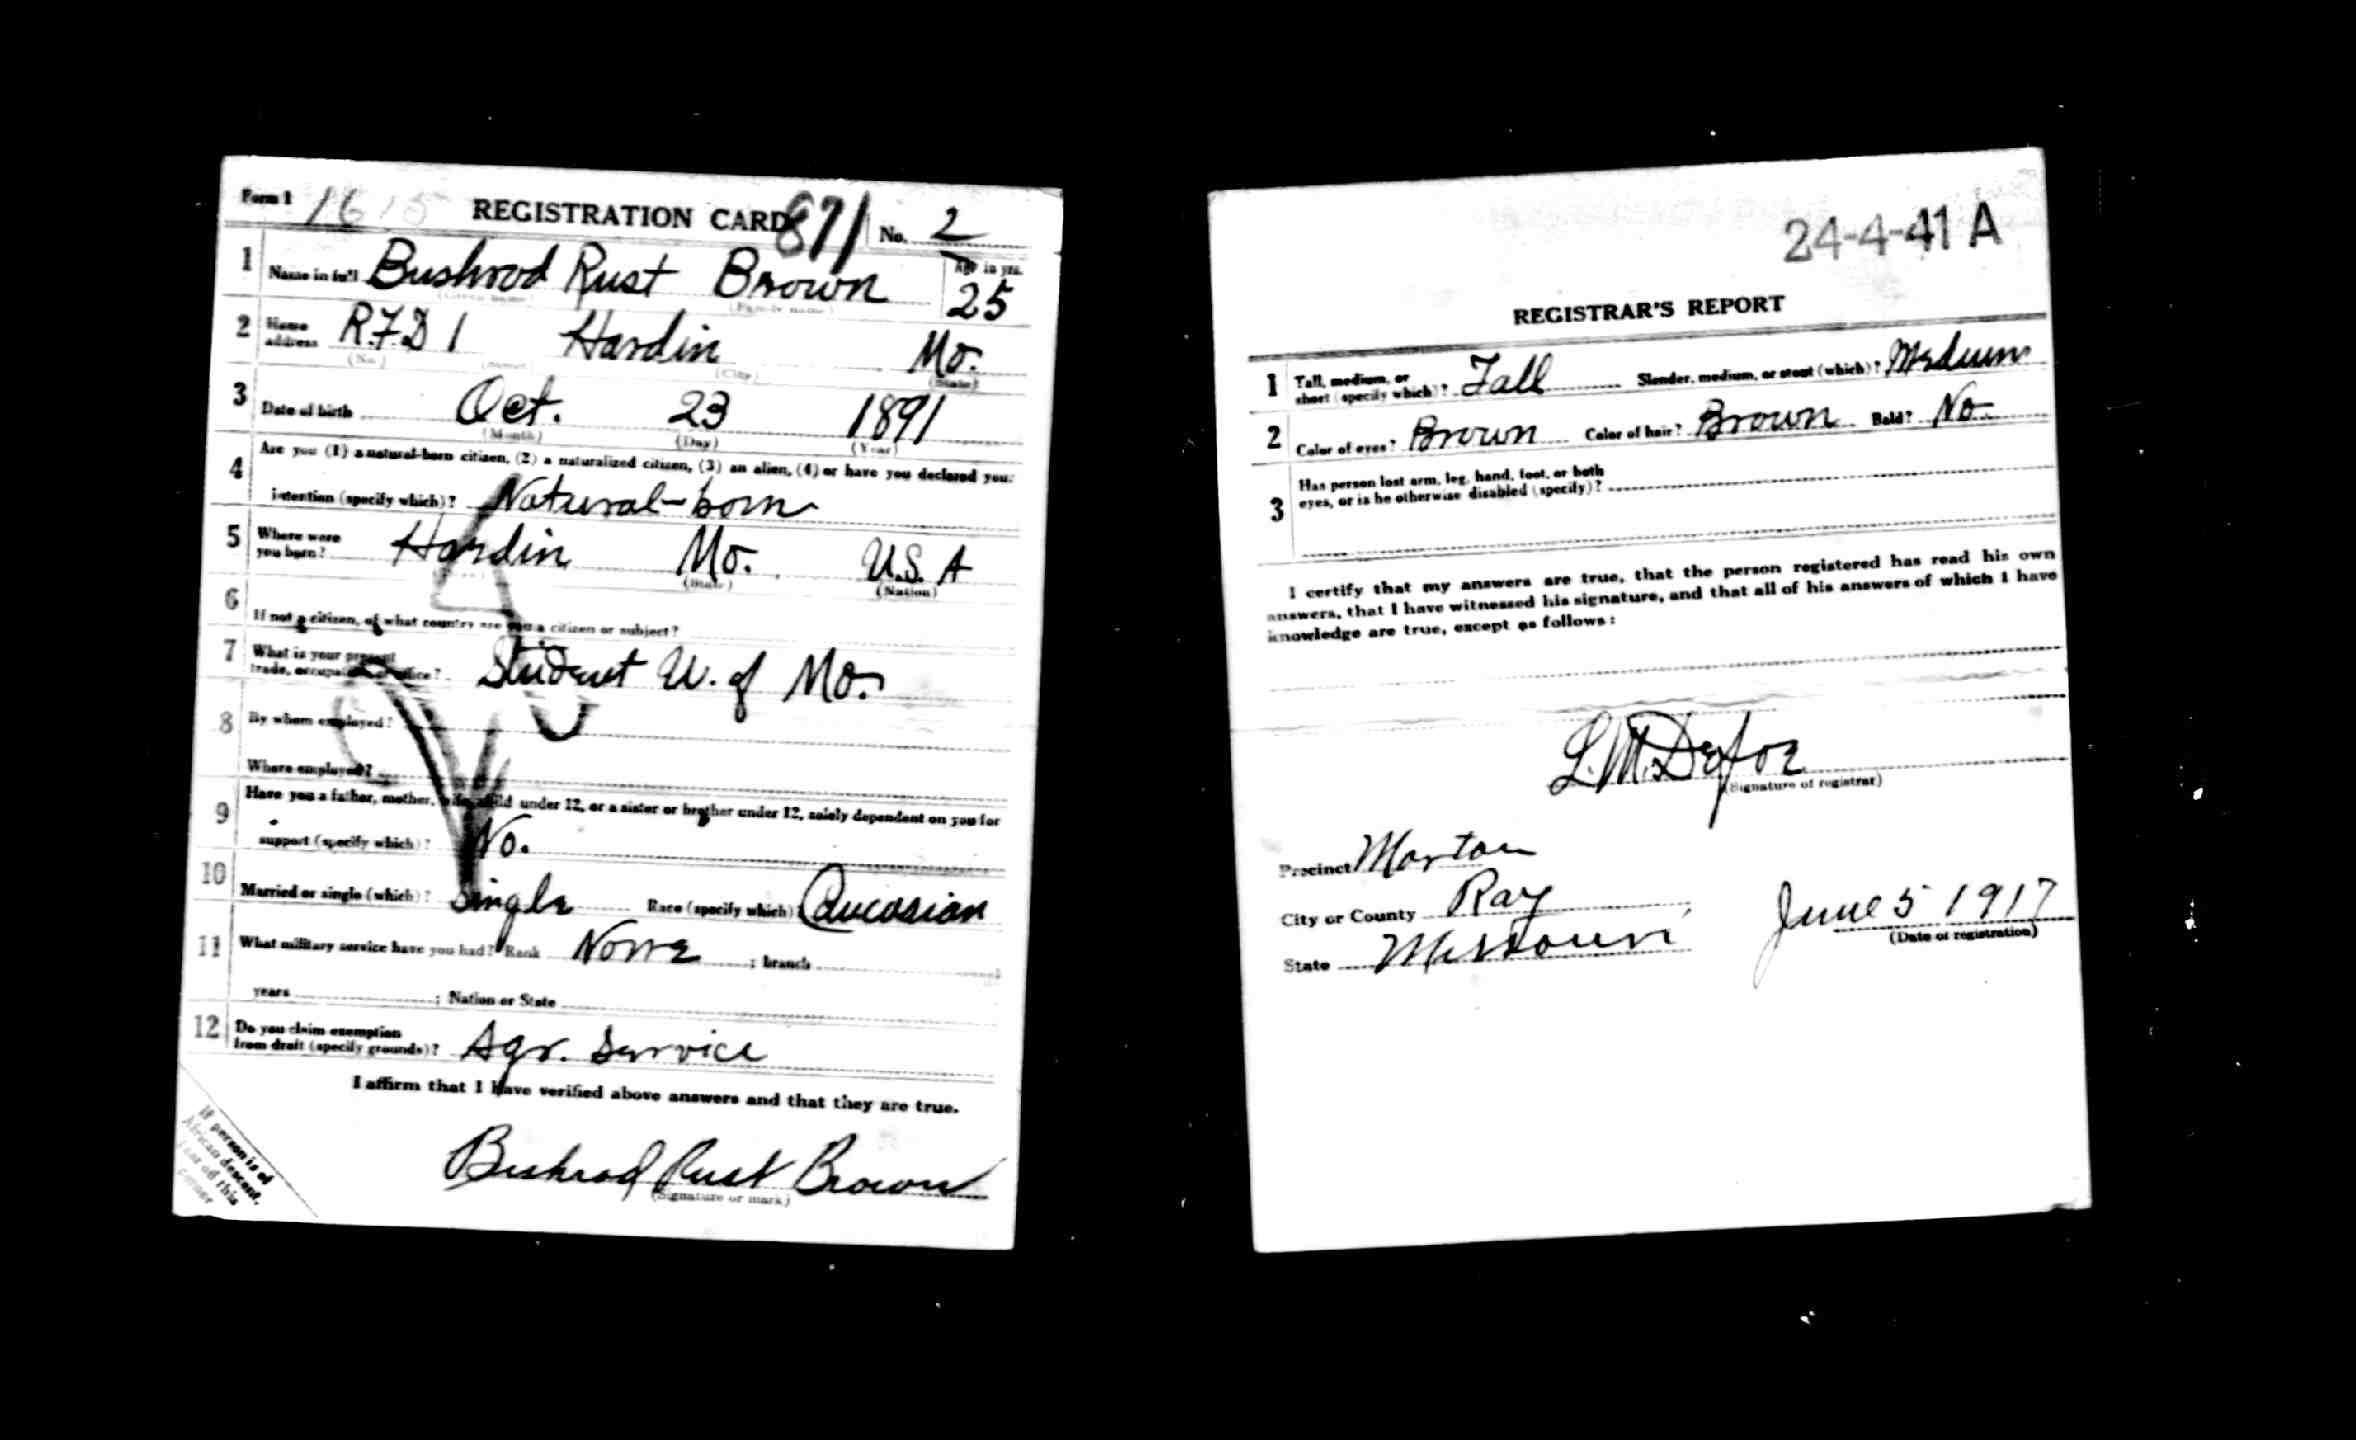 Form 1 1615 REGISTRATION CARD 871 No. 2
1 Name in full Bushrod Rust Brown Age in yrs. 25
(Given name) (Family name)
2 Home address R.F.D 1 Hardin Mo.
(No.) (Street) (City) (State)
3 Date of birth Oct. 23 1891
(Month) (Day) (Year)
4 Are you (1) a natural-born citizen, (2) a naturalized citizen, (3) an alien, (4) or have you declared your
intention (specify which)? Natural-born
5 Where were you born? Hardin Mo. U.S. A
(State) (Nation)
6 If not a citizen, of what country are you a citizen or subject?
7 What is your present
trade, occupation, or office? Student U. of Mo.
8 By whom employed?
Where employed?
9 Have you a father, mother, wife, child under 12, or a sister or brother under 12, solely dependent on you for
support (specify which)? No.
10 Married or single (which)? Single Race (specify which)? Caucasian
11 What military service have you had? Rank None ; branch
years ; Nation or State
12 Do you claim exemption
from draft (specify grounds)? Agr. Service
I affirm that I have verified above answers and that they are true.
Bushrod Rust Brown
(Signature or mark)
If person is of
African descent,
tear off this
corner
24-4-41 A
REGISTRAR'S REPORT
1 Tall, medium, or
short (specify which)? Tall Slender, medium, or stout (which)? Medium
2 Color of eyes? Brown Color of hair? Brown Bald? No
3 Has person lost arm, leg, hand, foot, or both
eyes, or is he otherwise disabled (specify)?
I certify that my answers are true, that the person registered has read his own
answers, that I have witnessed his signature, and that all of his answers of which I have
knowledge are true, except as follows:
L.M. Defoe
(Signature of registrar)
Precinct Morton
City or County Ray
State Missouri
June 5 1917
(Date of registration)